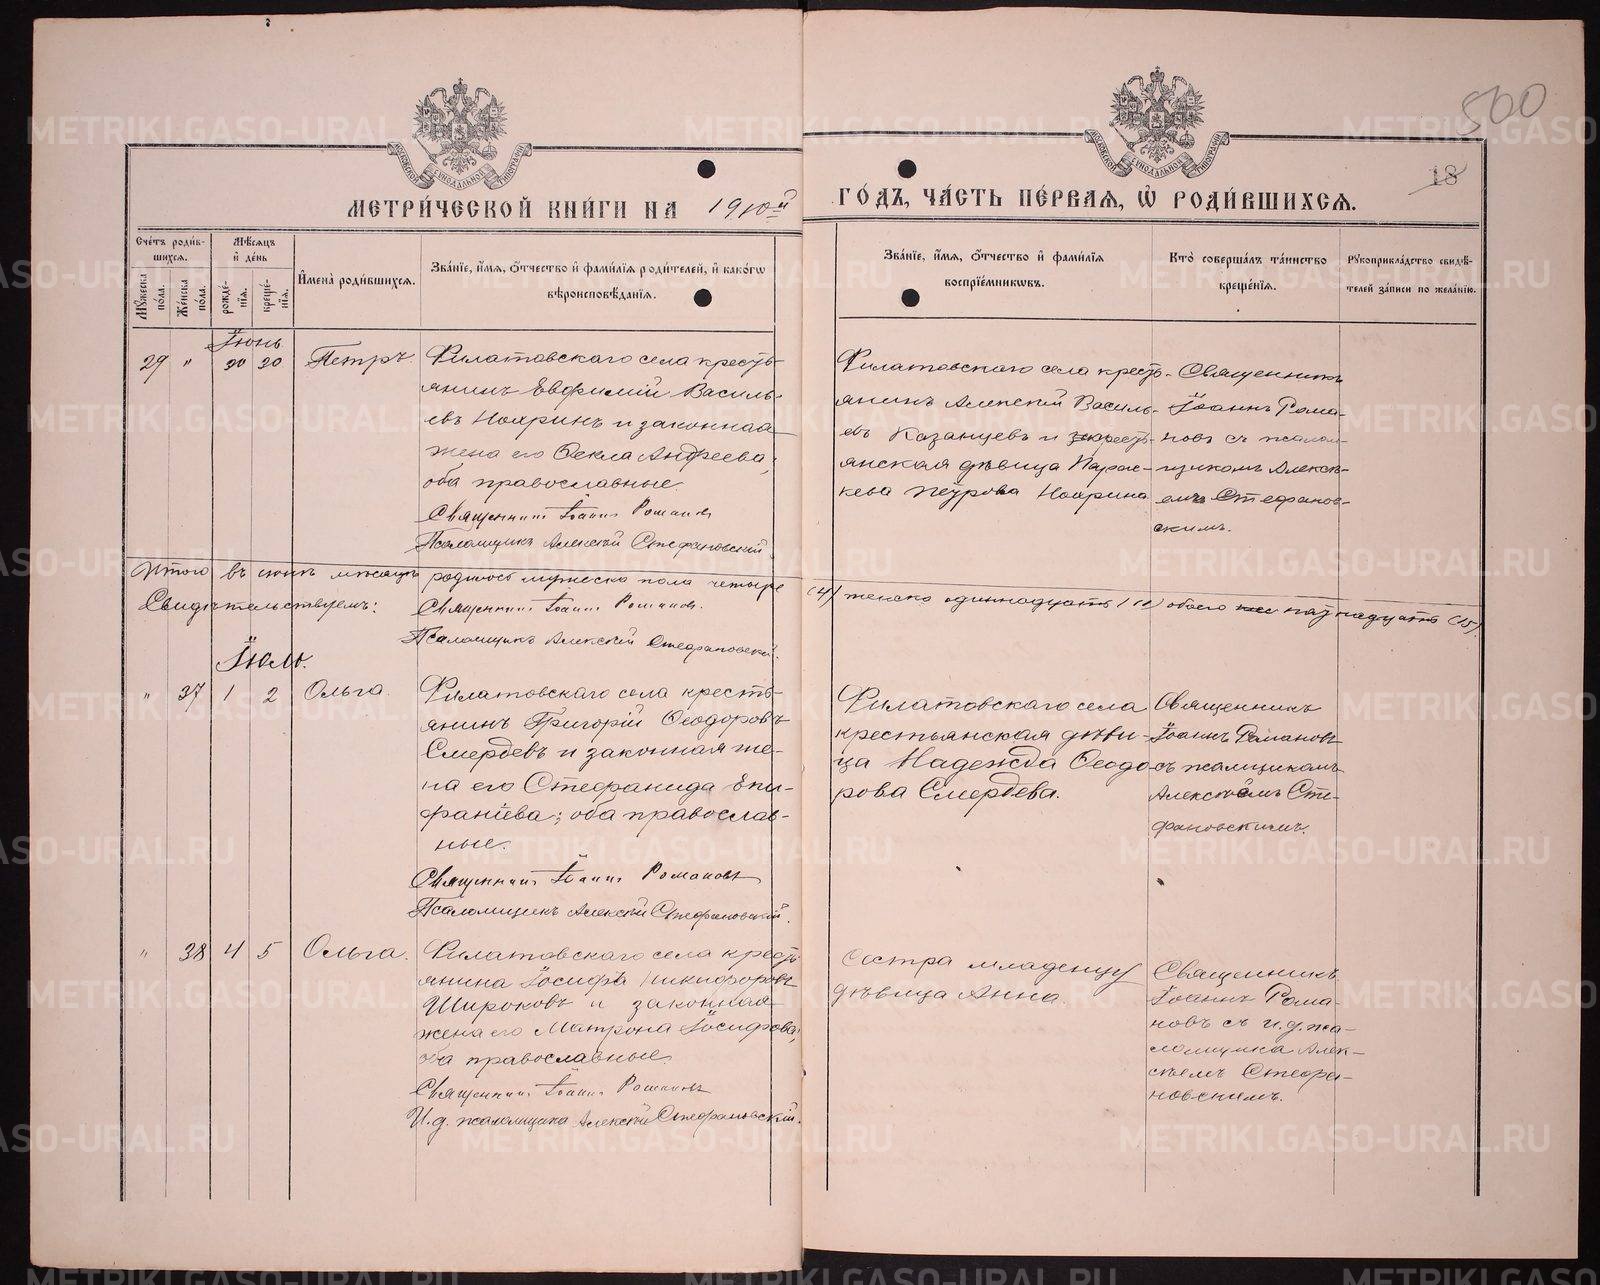 500
18
МЕТРИ́ЧЕСКОЙ КНИ́ГИ НА 1910й ГО́ДЪ, ЧА́СТЬ ПЕ́РВАЯ, Ѡ҆ РОДИ́ВШИХСЯ.
Сче́тъ роди́в-
шихся.
Мѣ́сяцъ
и҆ де́нь
Мꙋ́жеска по́ла.
Же́нска по́ла.
рожде́-
нїя.
креще́-
нїя.
И҆мена̀ роди́вшихся.
Зва́нїе, и҆́мя, ѻ҆́тчество и҆ фами́лїя роди́телей, и҆ како́гѡ
вѣроисповѣ́данїя.
Зва́нїе, и҆́мя, ѻ҆́тчество и҆ фами́лїя
воспрїе́мникѡвъ.
Кто̀ соверша́лъ та́инство
креще́нїя.
Рꙋкоприкла́дство свидѣ́-
телей за́писи по жела́нїю.
Іюнь
29 " 20 20 Петръ
Филатовскаго села кресть-
янинъ Евфимій Василь-
евъ Нояринъ и законная
жена его Ѳекла Андреева;
оба православные.
Священникъ Іоаннъ Романовъ
Псаломщикъ Алексѣй Стефановскій.
Филатовскаго села кресть-
янинъ Алексѣй Василь-
евъ Казанцевъ и кресть-
янская дѣвица Парас-
кева Петрова Ноярина
Священникъ
Іоаннъ Рома-
новъ съ псалом-
щикомъ Алексѣ-
емъ Стефанов-
скимъ.
Итого въ іюнѣ мѣсяцѣ родилось мужеска пола четыре (4) женско одиннадцать (11) обоего пятнадцать (15).
Свидѣтельствуемъ: Священникъ Іоаннъ Романовъ.
Псаломщикъ Алексѣй Стефановскій.
Іюль.
" 37 1 2 Ольга.
Филатовскаго села кресть-
янинъ Григорій Ѳеодоровъ
Смердевъ и законная же-
на его Стефанида Епи-
фаніева; оба православ-
ные.
Священникъ Іоаннъ Романовъ
Псаломщикъ Алексѣй Стефановскій.
Филатовскаго села
крестьянская дѣви-
ца Надежда Ѳеодо-
рова Смердева.
Священникъ
Іоаннъ Романовъ
съ псаломщикомъ
Алексѣемъ Сте-
фановскимъ.
" 38 4 5 Ольга.
Филатовскаго села кресть-
янина Іосифъ Никифоровъ
Широковъ и законная
жена его Матрона Іосифова;
оба православные
Священникъ Іоаннъ Романовъ
И.д. псаломщика Алексѣй Стефановскій.
Сестра младенцу
дѣвица Анна.
Священникъ
Іоаннъ Рома-
новъ съ и.д. пса-
ломщика Алек-
сѣемъ Стефа-
новскимъ.
METRIKI.GASO-URAL.RU